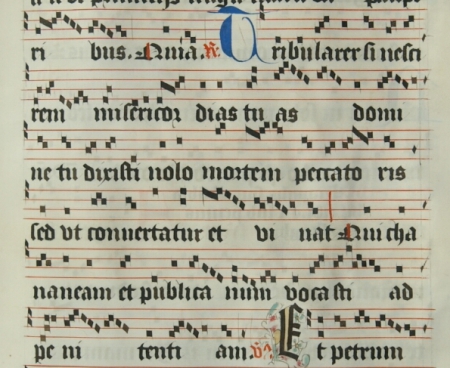 ri bus. Quia. R. Tribularer si nesci
rem misericor dias tu as domi
ne tu dixisti nolo mortem peccato ris
sed vt conuertatur et vi uat Qui cha
naneam et publica num voca sti ad
pe ni tenti am. V. Et petrum